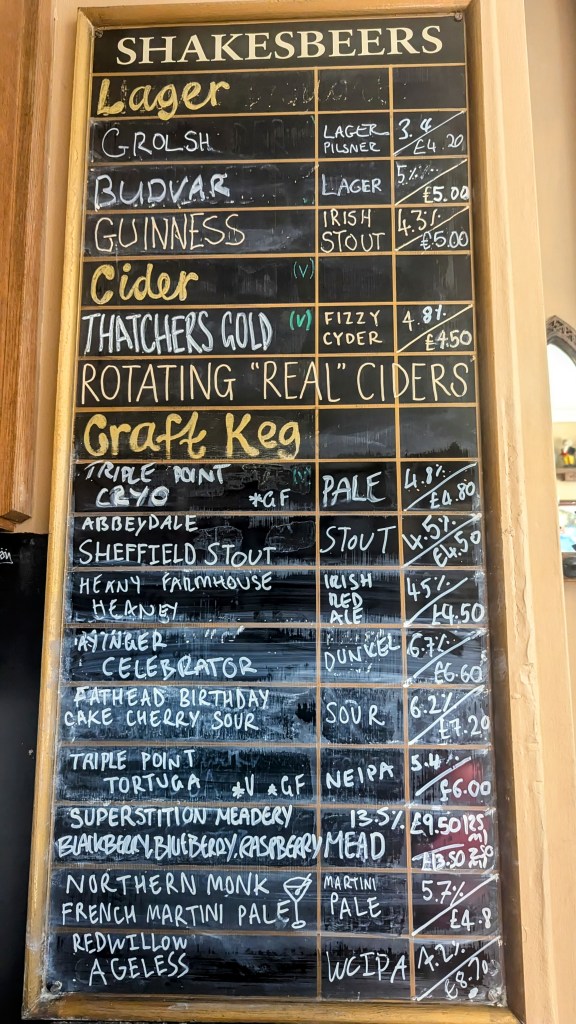 SHAKESBEERS
Lager
GROLSH LAGER PILSNER 3.4 £4.20
BUDVAR LAGER 5% £5.00
GUINNESS IRISH STOUT 4.3% £5.00
Cider (V)
THATCHERS GOLD (V) FIZZY CYDER 4.8% £4.50
ROTATING "REAL" CIDERS
Craft Keg
TRIPLE POINT (V)
CRYO *GF PALE 4.8% £4.80
ABBEYDALE
SHEFFIELD STOUT STOUT 4.5% £4.50
HEANY FARMHOUSE
HEANEY IRISH RED ALE 4.5% £4.50
AYINGER
CELEBRATOR DUNKEL 6.7% £6.60
FATHEAD BIRTHDAY
CAKE CHERRY SOUR SOUR 6.2% £7.20
TRIPLE POINT
TORTUGA *V *GF NEIPA 5.4% £6.00
SUPERSTITION MEADERY 13.5% £9.50 125 ml
BLACKBERRY, BLUEBERRY, RASPBERRY MEAD £13.50
NORTHERN MONK
FRENCH MARTINI PALE MARTINI PALE 5.7% £4.8
REDWILLOW
AGELESS WCIPA 7.2%